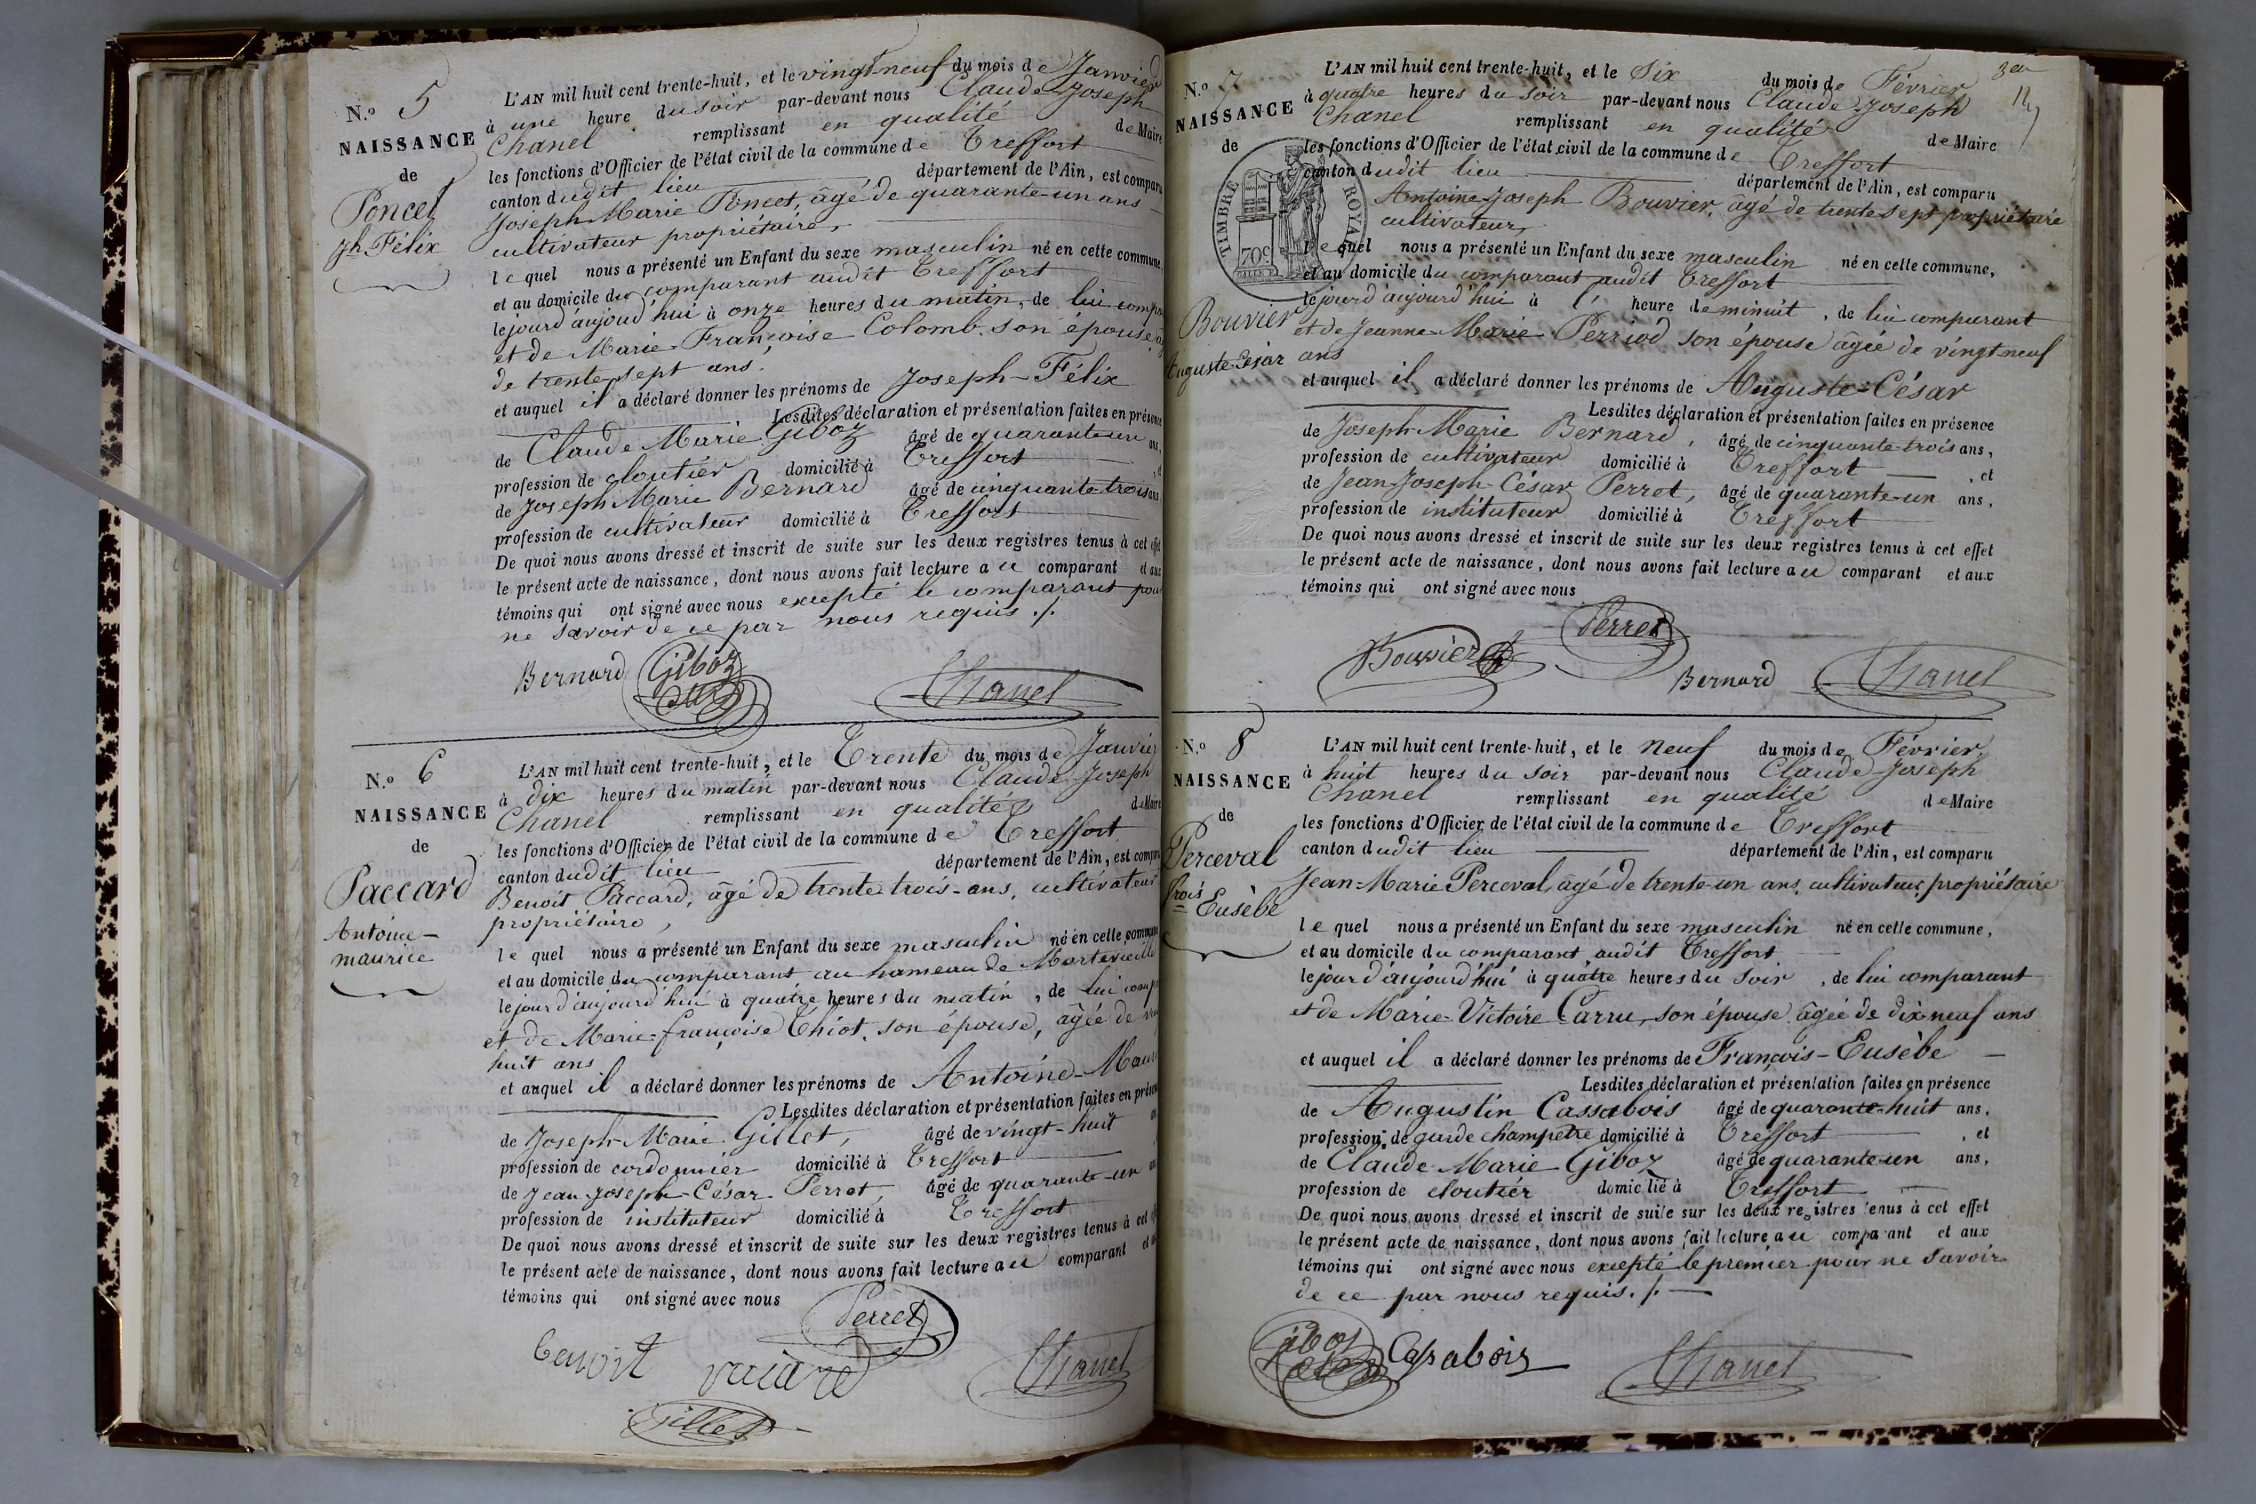 N.º 5
NAISSANCE
de
Poncet
Jh Félix
L'AN mil huit cent trente-huit, et le vingt-neuf du mois de Janvier
à une heure du soir par-devant nous Claude Joseph
Chanel remplissant en qualité de Maire
les fonctions d'Officier de l'état civil de la commune de Treffort
canton dudit lieu département de l'Ain, est comparu
Joseph Marie Poncet, âgé de quarante-un ans
cultivateur propriétaire,
lequel nous a présenté un Enfant du sexe masculin né en cette commune,
et au domicile du comparant audit Treffort
le jour d'aujourd'hui à onze heures du matin, de lui
et de Marie Françoise Colomb son épouse,
de trente sept ans.
et auquel il a déclaré donner les prénoms de Joseph-Félix
Lesdites déclaration et présentation faites en présence
de Claude Marie Giboz âgé de quarante-un ans,
profession de cloutier domicilié à Treffort, et
de Joseph Marie Bernard âgé de cinquante-trois ans
profession de cultivateur domicilié à Treffort
De quoi nous avons dressé et inscrit de suite sur les deux registres tenus à cet effet
le présent acte de naissance, dont nous avons fait lecture au comparant et aux
témoins qui ont signé avec nous excepté le comparant pour
ne savoir de ce par nous requis ./.
Bernard Giboz Chanel
N.º 6
NAISSANCE
de
Paccard
Antoine-
maurice
L'AN mil huit cent trente-huit, et le Trente du mois de Janvier
à dix heures du matin par-devant nous Claude Joseph
Chanel remplissant en qualité de Maire
les fonctions d'Officier de l'état civil de la commune de Treffort
canton dudit lieu département de l'Ain, est comparu
Benoit Paccard, âgé de trente trois ans, cultivateur
propriétaire,
lequel nous a présenté un Enfant du sexe masculin né en cette commune
et au domicile du comparant au hameau de
le jour d'aujourd'hui à quatre heures du matin, de lui
et de Marie-françoise Thiot, son épouse, âgée de
huit ans
et auquel il a déclaré donner les prénoms de Antoine-
Lesdites déclaration et présentation faites en
de Joseph-Marie Gillet, âgé de vingt-huit
profession de cordonnier domicilié à Treffort
de Jean-Joseph-César Perret, âgé de quarante-un
profession de instituteur domicilié à Treffort
De quoi nous avons dressé et inscrit de suite sur les deux registres tenus à cet
le présent acte de naissance, dont nous avons fait lecture au comparant et
témoins qui ont signé avec nous
Perret
benoit Chanel
Gillet
3eu
N.º 7
NAISSANCE
de
TIMBRE ROYAL
70c
Bouvier
Auguste César
L'AN mil huit cent trente-huit, et le Six du mois de Février
à quatre heures du soir par-devant nous Claude Joseph
Chanel remplissant en qualité de Maire
les fonctions d'Officier de l'état civil de la commune de Treffort
canton dudit lieu département de l'Ain, est comparu
Antoine-Joseph Bouvier, âgé de trente sept propriétaire
cultivateur,
lequel nous a présenté un Enfant du sexe masculin né en cette commune,
et au domicile du comparant audit Treffort
le jour d'aujourd'hui à l' heure de minuit, de lui comparant
et de Jeanne-Marie Perriod son épouse âgée de vingt-neuf
ans
et auquel il a déclaré donner les prénoms de Auguste-César
Lesdites déclaration et présentation faites en présence
de Joseph-Marie Bernard, âgé de cinquante-trois ans,
profession de cultivateur domicilié à Treffort, et
de Jean-Joseph-César Perret, âgé de quarante-un ans,
profession de instituteur domicilié à Treffort
De quoi nous avons dressé et inscrit de suite sur les deux registres tenus à cet effet
le présent acte de naissance, dont nous avons fait lecture au comparant et aux
témoins qui ont signé avec nous
Perret
Bouvier Bernard Chanel
N.º 8
NAISSANCE
de
Perceval
frois
Eusèbe
L'AN mil huit cent trente-huit, et le Neuf du mois de Février
à huit heures du soir par-devant nous Claude-Joseph
Chanel remplissant en qualité de Maire
les fonctions d'Officier de l'état civil de la commune de Treffort
canton dudit lieu département de l'Ain, est comparu
Jean-Marie Perceval, âgé de trente-un ans, cultivateur, propriétaire
lequel nous a présenté un Enfant du sexe masculin né en cette commune,
et au domicile du comparant audit Treffort
le jour d'aujourd'hui à quatre heures du soir, de lui comparant
et de Marie-Victoire Carru, son épouse âgée de dix-neuf ans
et auquel il a déclaré donner les prénoms de François-Eusèbe
Lesdites déclaration et présentation faites en présence
de Augustin Cassabois âgé de quarante-huit ans,
profession de garde champetre domicilié à Treffort, et
de Claude-Marie Giboz âgé de quarante-un ans,
profession de cloutier domicilié à Treffort
De quoi nous avons dressé et inscrit de suite sur les deux registres tenus à cet effet
le présent acte de naissance, dont nous avons fait lecture au comparant et aux
témoins qui ont signé avec nous excepté le premier pour ne savoir
de ce par nous requis ./.
Giboz Casabois Chanel